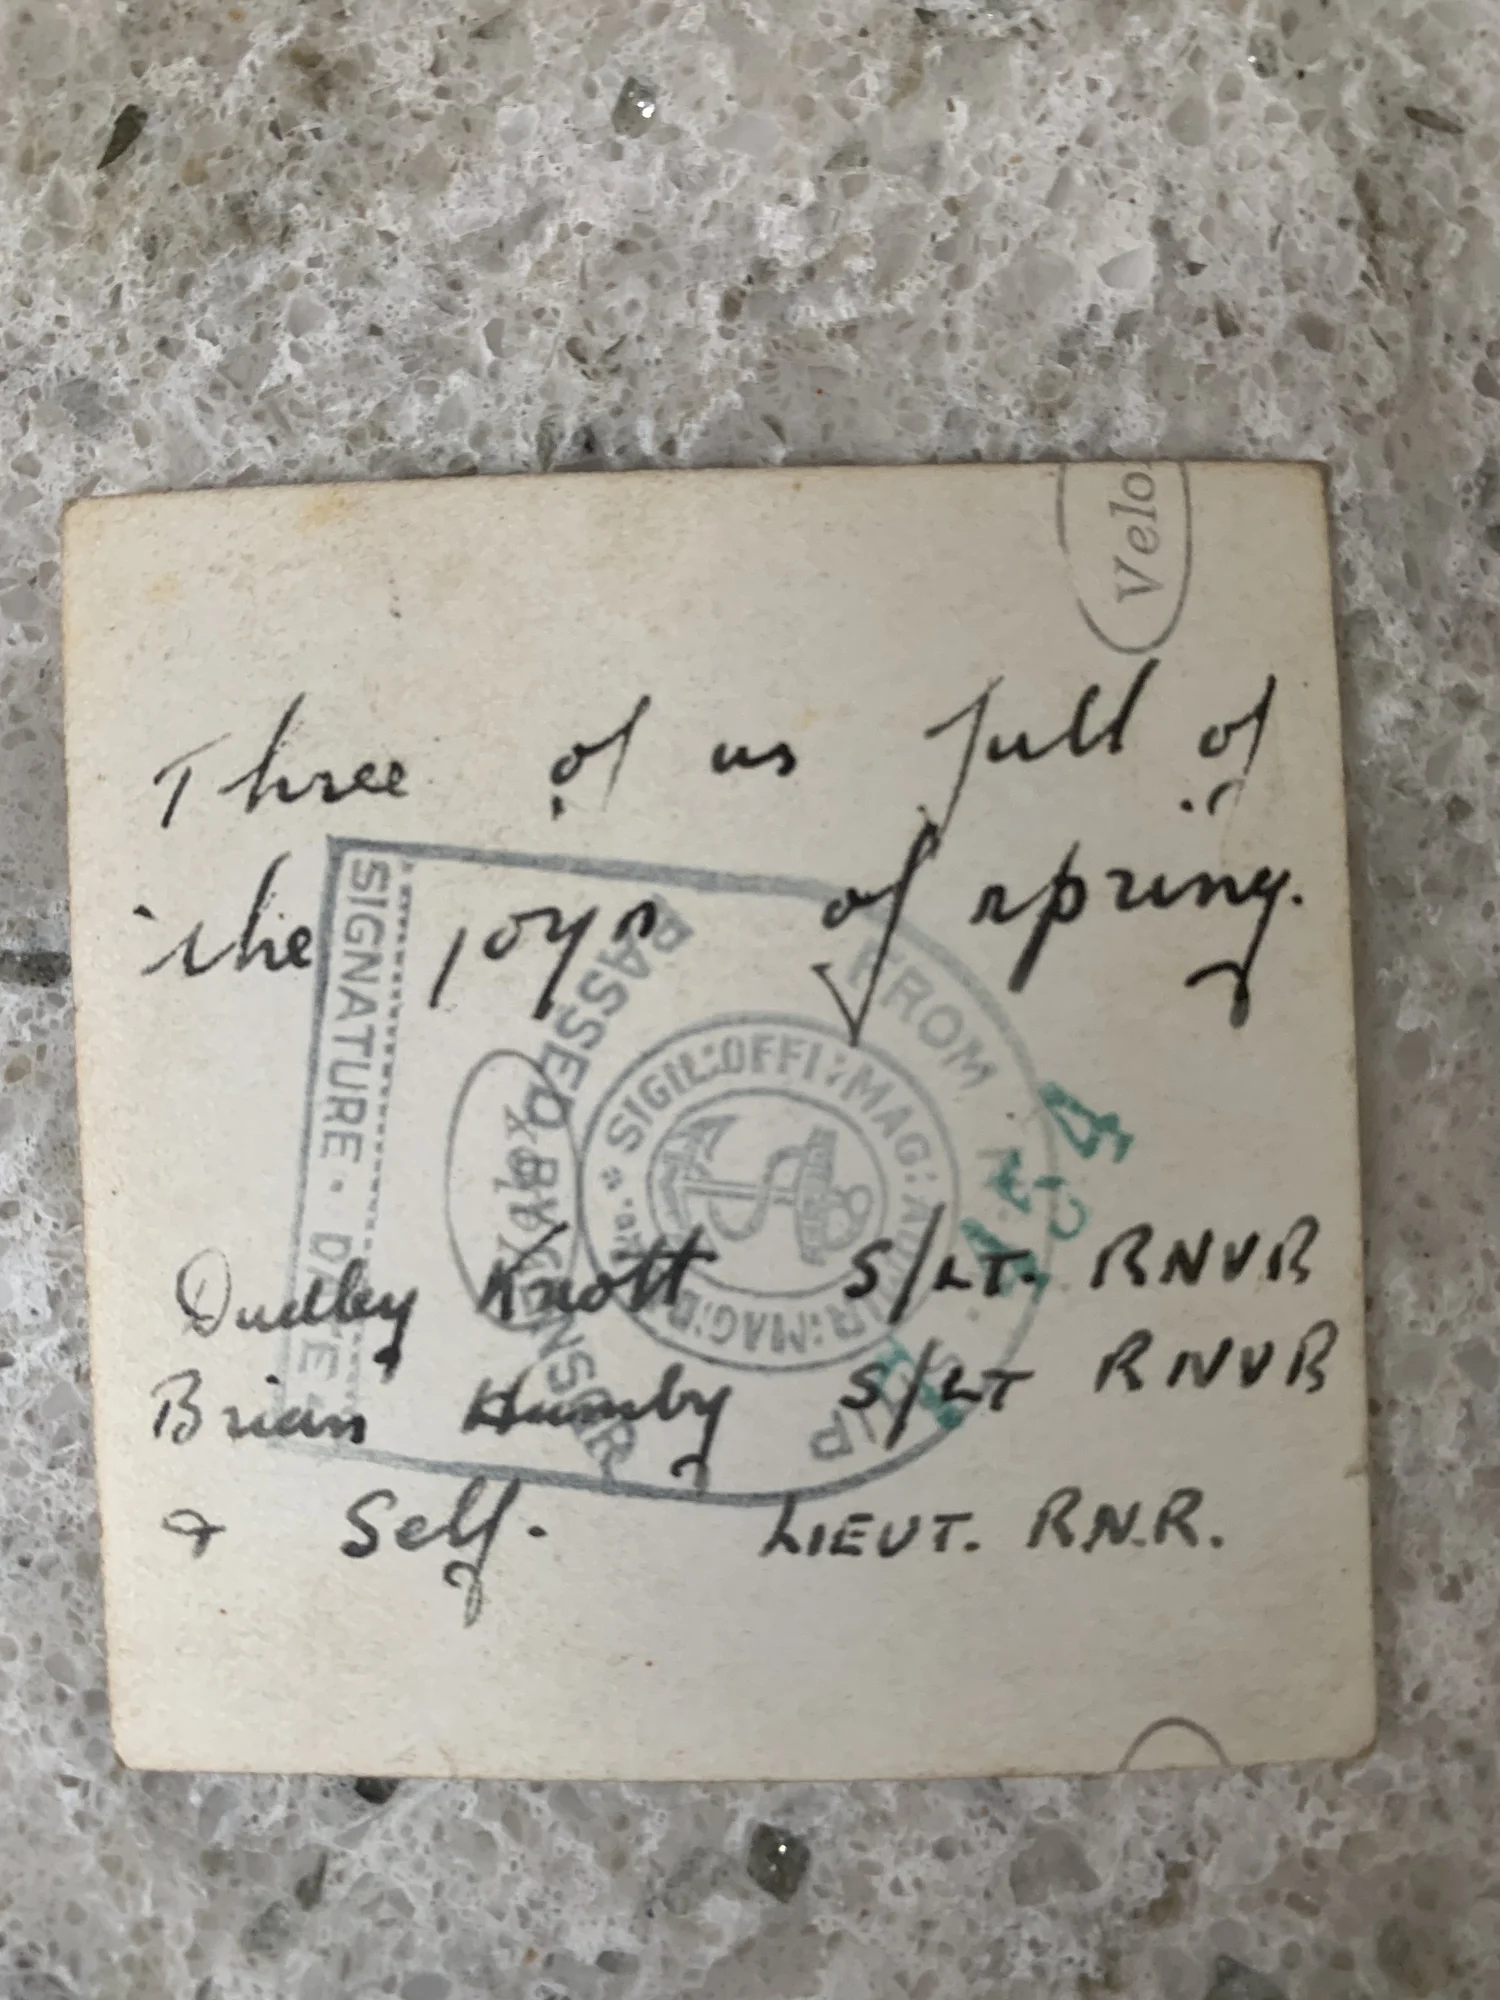 Velo
Three of us full of
the joys of spring.
SIGNATURE · DATE
PASSED BY CENSOR
FROM
SHIP
SIGIL:OFFI:MAG:
Dudley Knott S/LT. RNVR
Brian Humby S/LT RNVR
& Self. LIEUT. R.N.R.